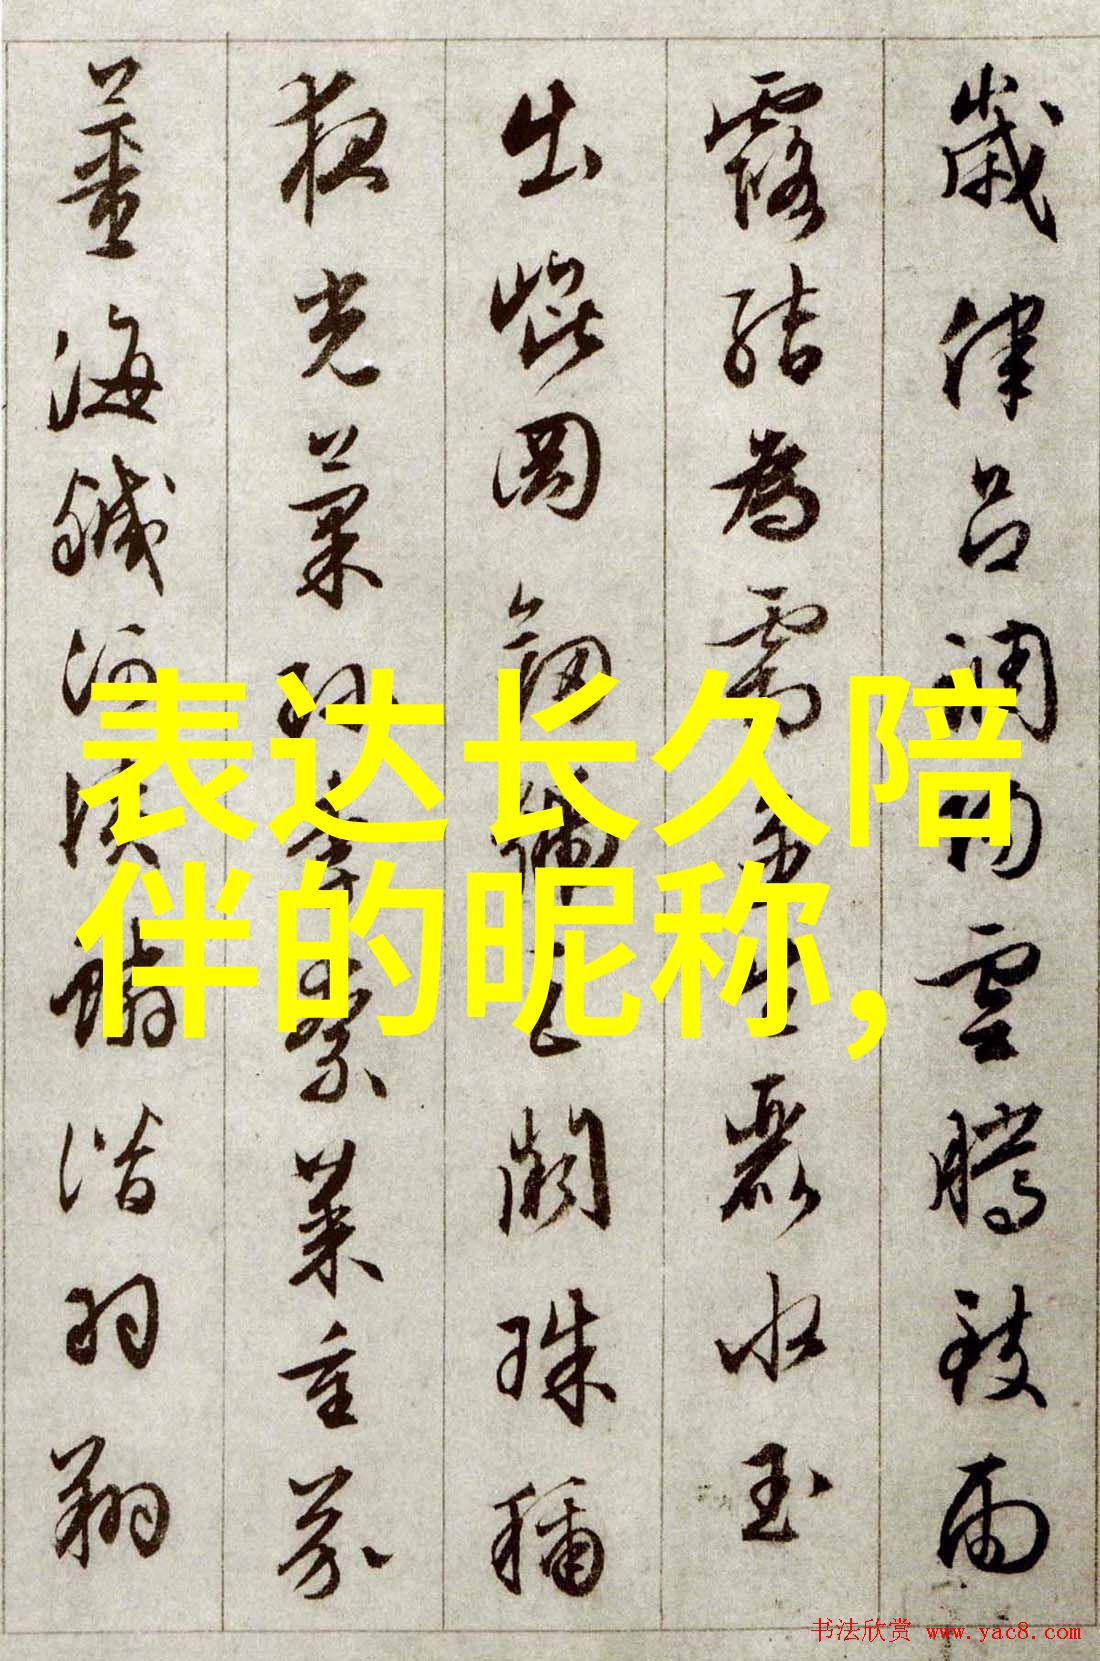 歲律呂調陽雲騰致雨
露結為霜金生麗水玉
出崐岡劍號巨闕珠稱
夜光菓珍李柰菜重芥
薑海鹹河淡鱗潛羽翔
表达长久陪
伴的昵称，
书法欣赏 www.yac8.com